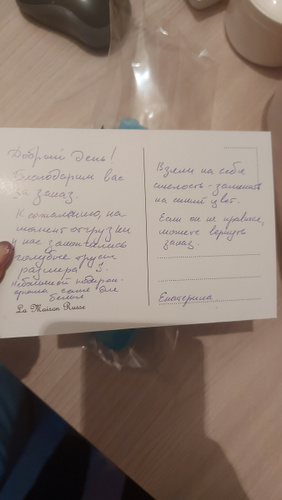 Добрый день!
Благодарим вас
за заказ.
К сожалению, на
момент отгрузки
у нас закончились
голубые трусы
размера S.
Небольшой
белья
La Maison Russe
Взяли на себя
смелость - заменить
на синий цвет.
Если он не нравится,
можете вернуть
заказ.
Екатерина